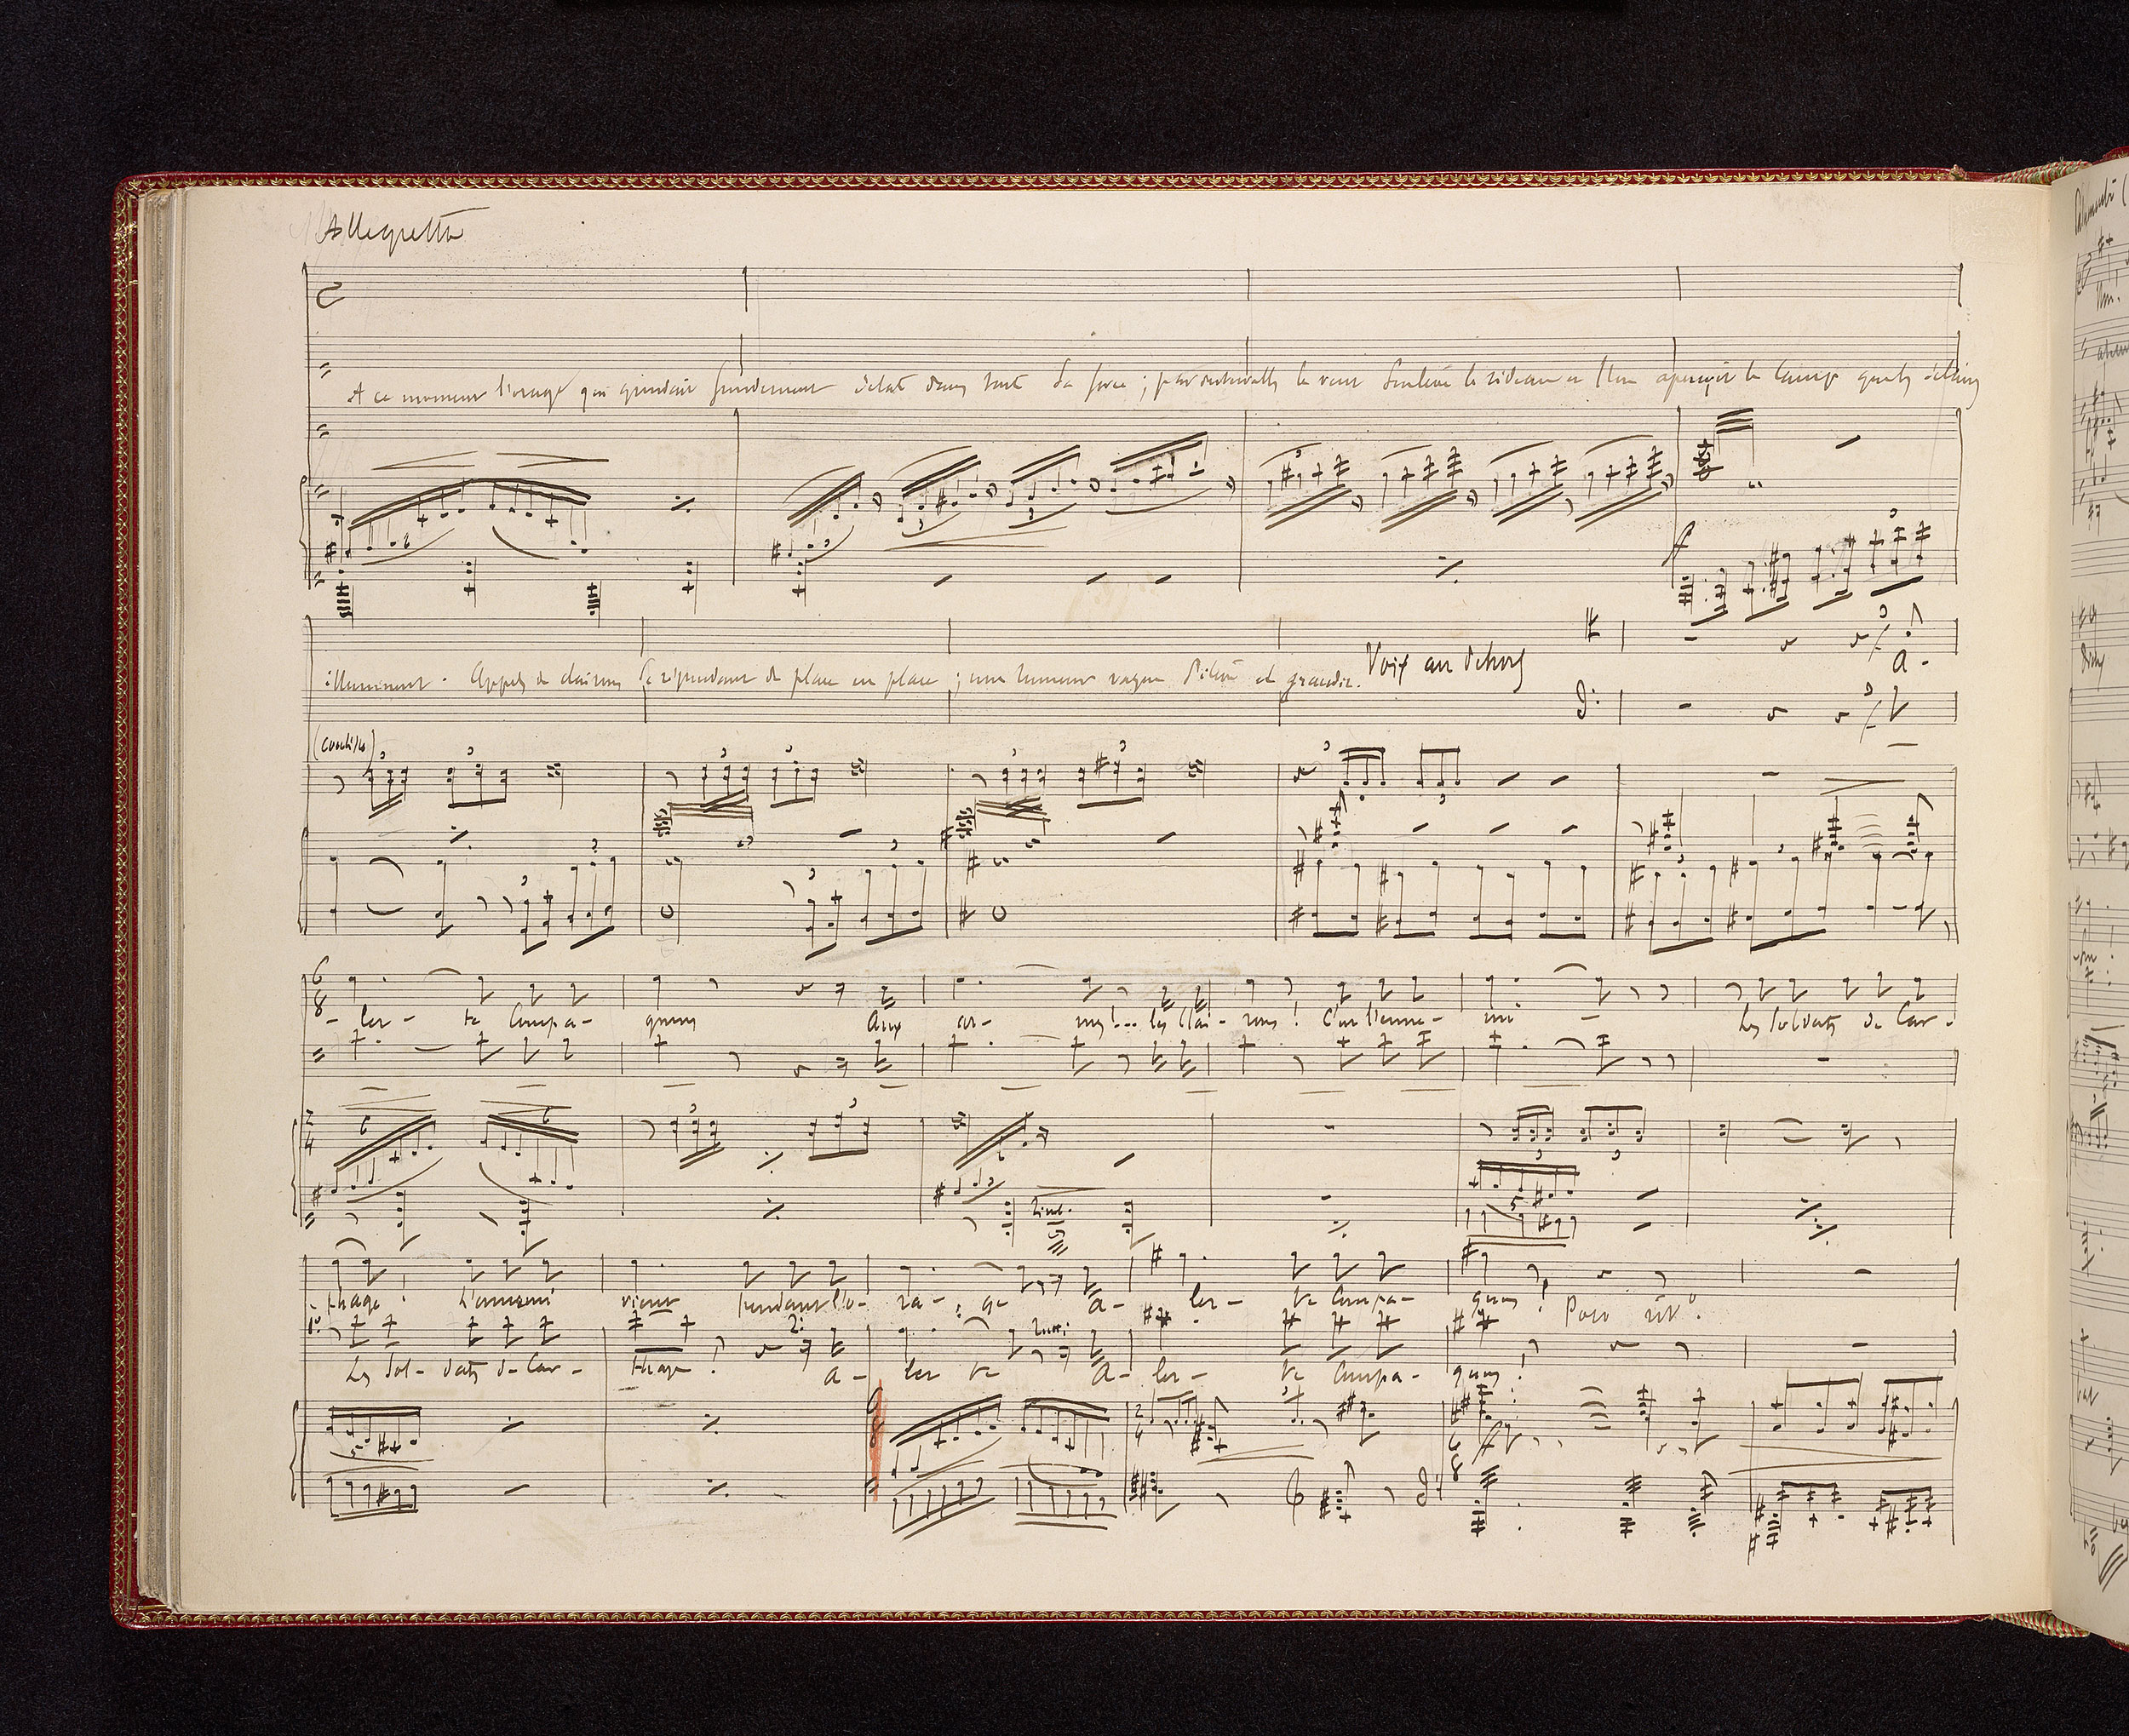 Allegretto
A ce moment l'orage qui grondait sourdement éclate dans toute sa force ; par intervalles le vent soulève le rideau et l'on aperçoit le camp que les éclairs
illuminent. Appels de clairons se répondant de place en place ; une rumeur vague s'élève et grandit. Voix au dehors
A-
(Coulisse)
- ler - te Compa- gnons Aux ar- mes!... les Clai- rons ! C'est l'enne- mi - Les Soldats de Car -
6 8
2 4
- thage ! L'ennemi vient pendant l'o- ra- ge A- ler- te Compa- gnons ! Poco rit.
1° 2°
Les Sol- dats de Car - thage ! A - ler te A- ler- te Compa- gnons !
6 8
2 4